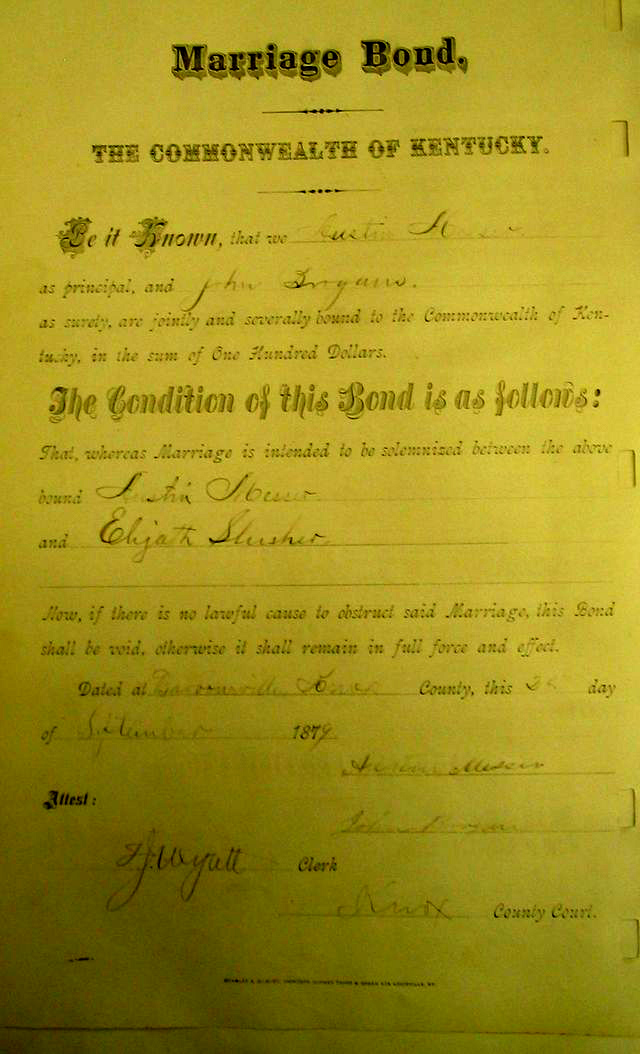 Marriage Bond.
THE COMMONWEALTH OF KENTUCKY.
Be it Known, that we Austin Messer
as principal, and John
as surety, are jointly and severally bound to the Commonwealth of Ken-
tucky, in the sum of One Hundred Dollars.
The Condition of this Bond is as follows:
That, whereas Marriage is intended to be solemnized between the above
bound Austin Messer
and Elizath Slusher
Now, if there is no lawful cause to obstruct said Marriage, this Bond
shall be void, otherwise it shall remain in full force and effect.
Dated at Barbourville Knox County, this day
of September 1879
Messer
Attest:
John
Wyatt Clerk
Knox County Court.